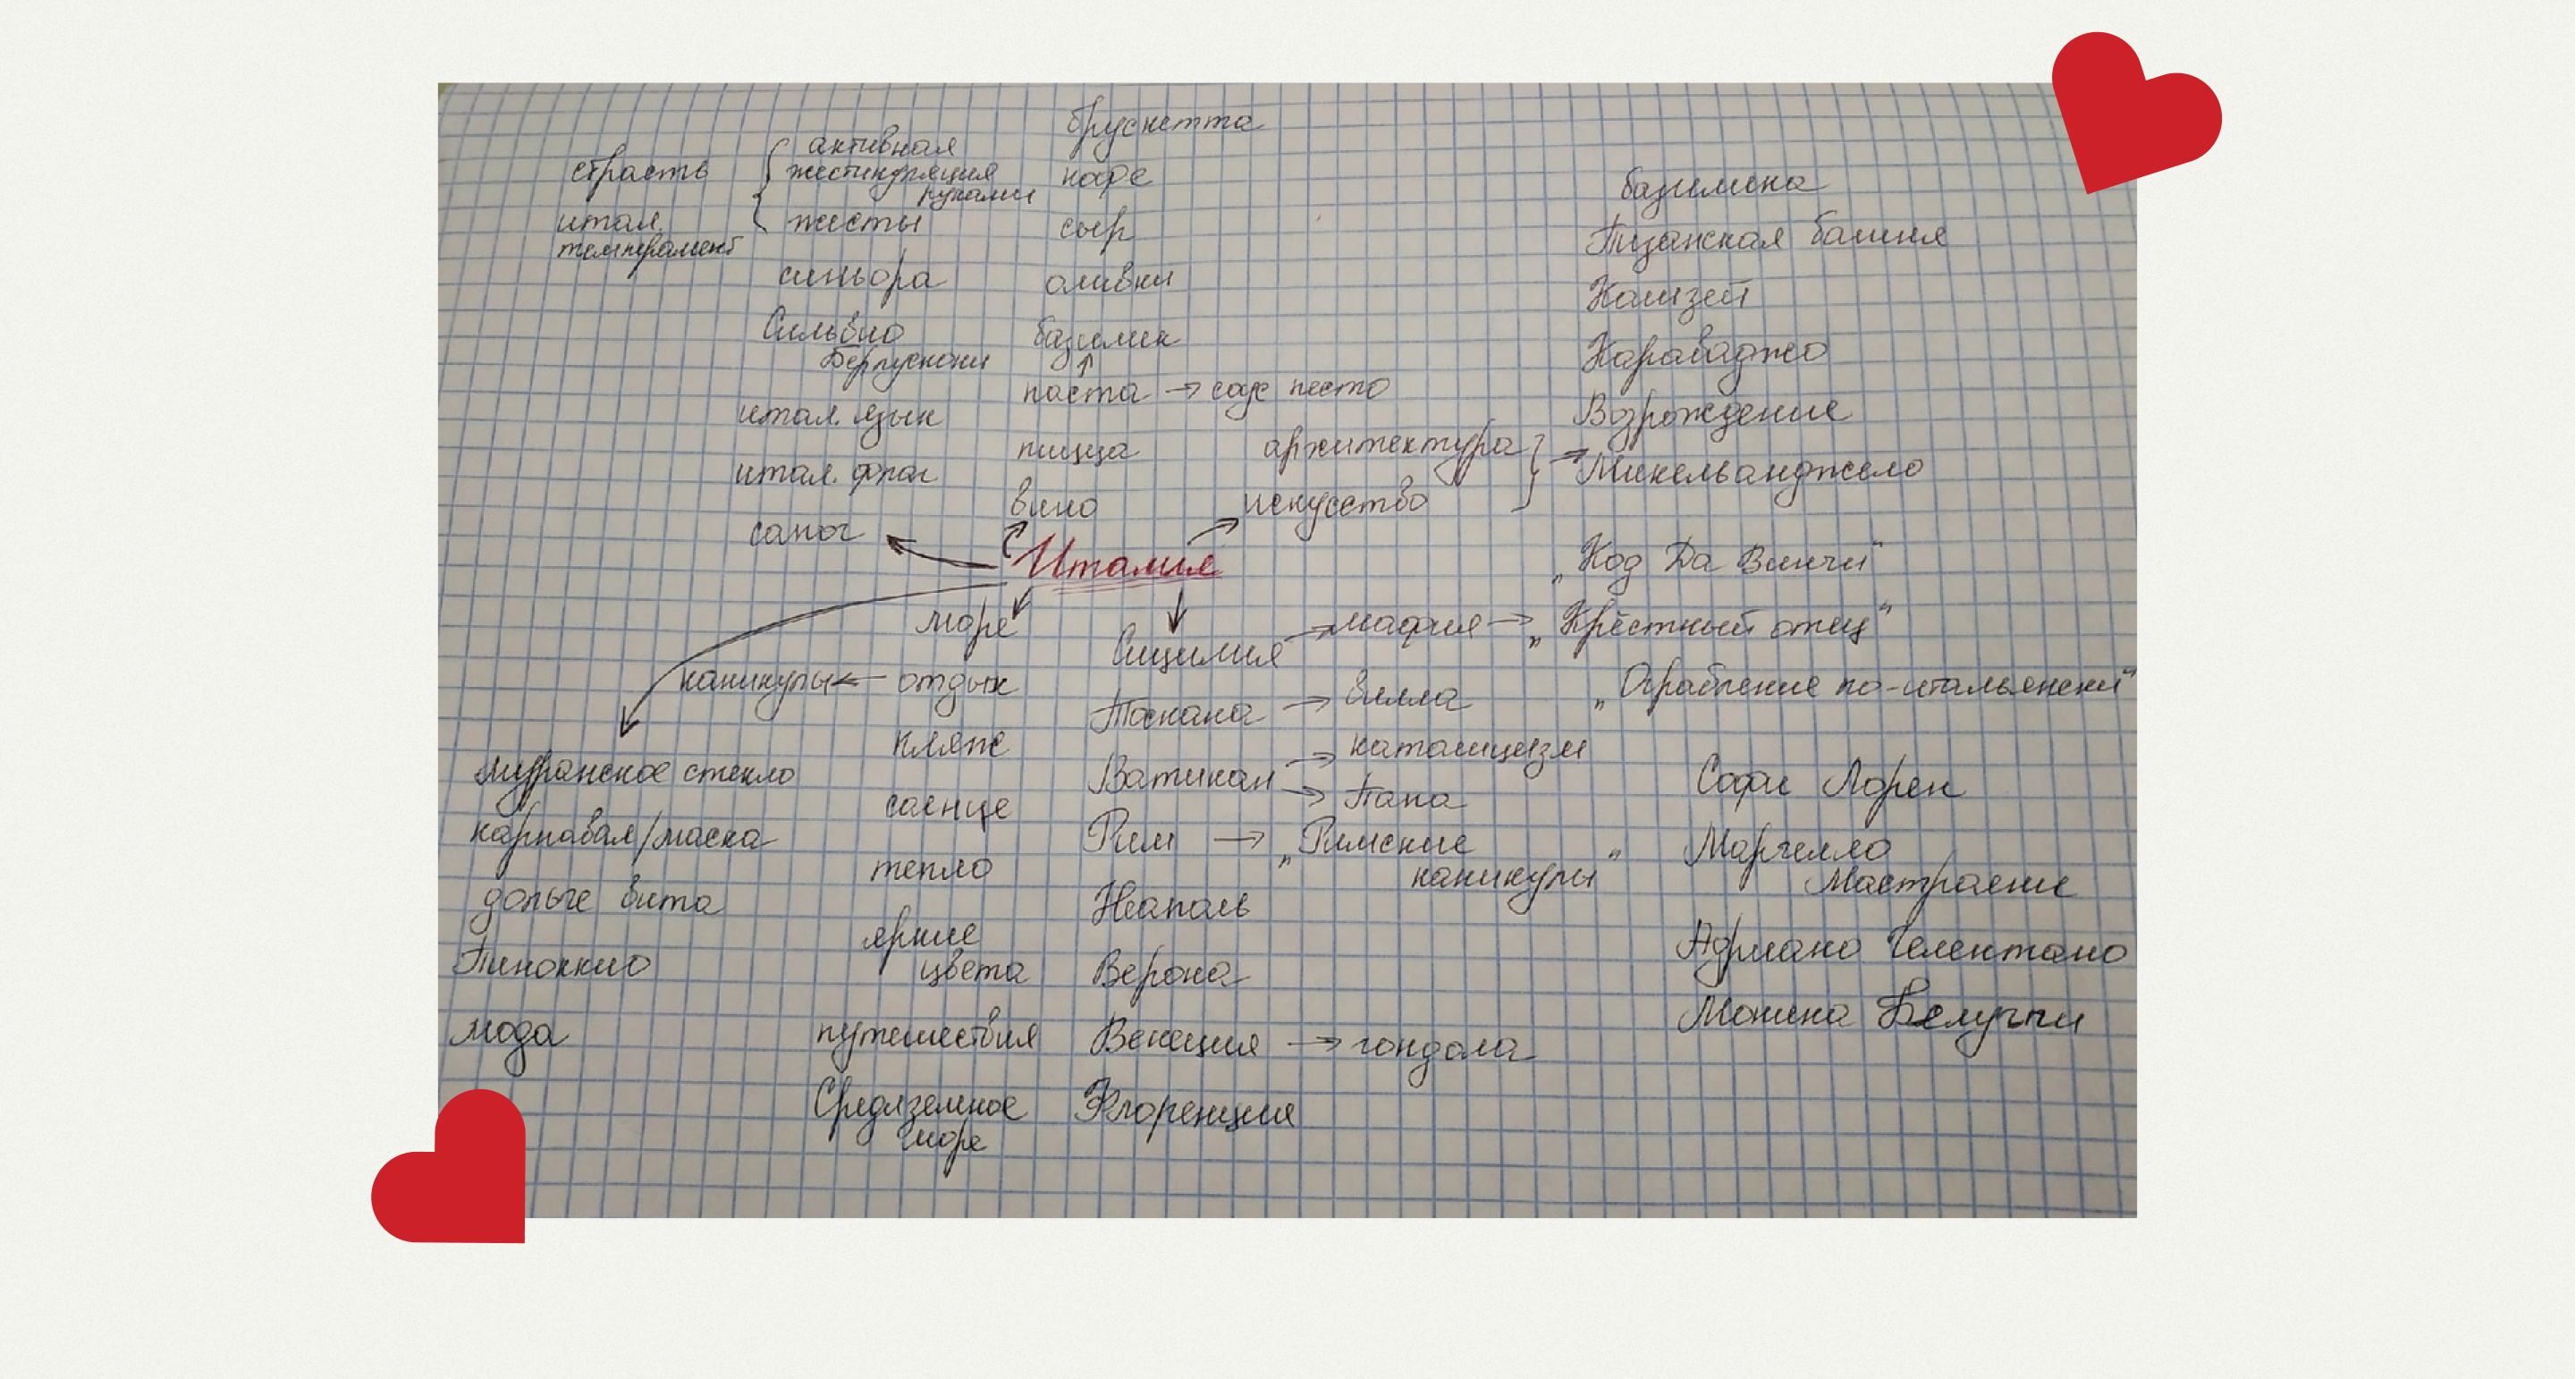 брускетта
кофе
сыр
оливки
базилик
↑
паста → соус песто
пицца
вино
активная
жестикуляция
руками
жесты
страсть
итал.
темперамент
синьора
Сильвио
Берлускони
итал. язык
итал. флаг
сапог
базилика
Пизанская башня
Колизей
Караваджо
Возрождение
Микельанджело
архитектура
искусство
Италия
„Код Да Винчи“
„Крёстный отец“
„Ограбление по-итальянски“
море
каникулы ← отдых
пляж
солнце
тепло
яркие
цвета
путешествия
Средиземное
море
Сицилия → мафия →
Тоскана → вилла
Ватикан → католицизм
→ Папа
Рим → „Римские
каникулы“
Неаполь
Верона
Венеция → гондола
Флоренция
муранское стекло
карнавал/маска
дольче вита
Пиноккио
мода
Софи Лорен
Марчелло
Мастрояни
Адриано Челентано
Моника Белуччи